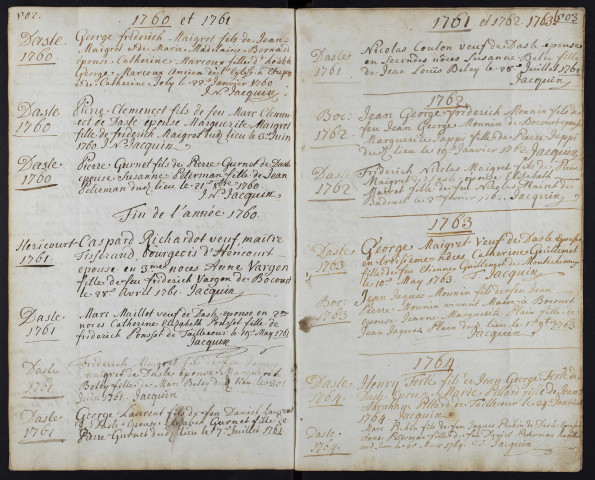 502.
1760 et 1761
Daste
1760
George friderich Maigret fils de Jean
Maigret et de Marie Madelaine Bernard
épouse Catherine Marcoux fille d'honble
George Marcoux Ancien de l'Eglise
et de Catherine Joly le 22e Janvier 1760
J.N. Jacquin
Daste
1760
Pierre Clemencet fils de feu Marc Clemen-
cet de Daste épouse Marguerite Maigret
fille de friderich Maigret du lieu le 3e Juin
1760 J.N. Jacquin
Daste
1760
Pierre Gurnet fils de Pierre Gurnet de Daste
épouse Susanne Peterman fille de Jean
Peterman du lieu le 21e 1760
J.N. Jacquin
Fin de l'année 1760
Hericourt
1761
Caspard Richardot veuf, maitre
Tisserand, bourgeois d'Hericourt
epouse en 3mes noces Anne Vargon
fille de feu friderich Vargon de Bocourt
le 28e Avril 1761 Jacquin
Daste
1761
Marc Maillet veuf de Daste epouse en 2des
noces Catherine Elizabeth Ponsset fille de
friderich Ponsset de Taillecour le 19e May 1761
Jacquin
Daste
1761
Friderich Maigret fils de
Maigret de Daste épouse Margueritte
Beley fille de Marc Beley du lieu le 30e
Juin 1761 Jacquin
Daste
1761
George Laurent fils de feu Daniel Laurent
de Daste épouse Elizabeth Gurnet fille de
Pierre Gurnet du lieu le 7e Juillet 1761
503
1761 et 1762 1763
Daste
1761
Nicolas Coulon veuf de Daste épouse
en secondes noces Susanne Beley fille
de Jean Louis Beley le 28e Juillet 1761
Jacquin
1762
Boc:
1762
Jean George friderich Mounin fils de
feu Jean George Mounin de Bocourt épouse
Marguerite Jappé fille de Pierre Jappé
du lieu le 19e Janvier 1762 Jacquin
Daste
1762
Friderich Nicolas Maigret fils de Pierre
Maigret de Daste épouse Elizabeth
fille de feu Nicolas
le 2e fevrier 1762 Jacquin
1763
Daste
1763
George Maigret Veuf de Daste épouse
en troisieme noces Catherine Guillemet
fille de feu Etienne Guillemet
le 10e May 1763. Jacquin
Boc:
1763
Jean Jaques Mounin fils de feu Jean
Pierre Mounin vivant Maire à Bocourt
épouse Jeanne Marguerite Plain fille de
Jean Jaques Plain du lieu le 1er 9bre 1763
Jacquin
1764
Daste
1764.
Henry Ferté fils de Jean George Ferté de
Daste épouse Marie Pillard fille de Jean
Abraham Pillard de Taillecour le 24e Janvier
1764 Jacquin
Daste
1764
Marc fils de feu Jaques de Daste épouse
Anne Peterman fille de feu Daniel Peterman
du lieu le 6e Mars 1764. Jacquin